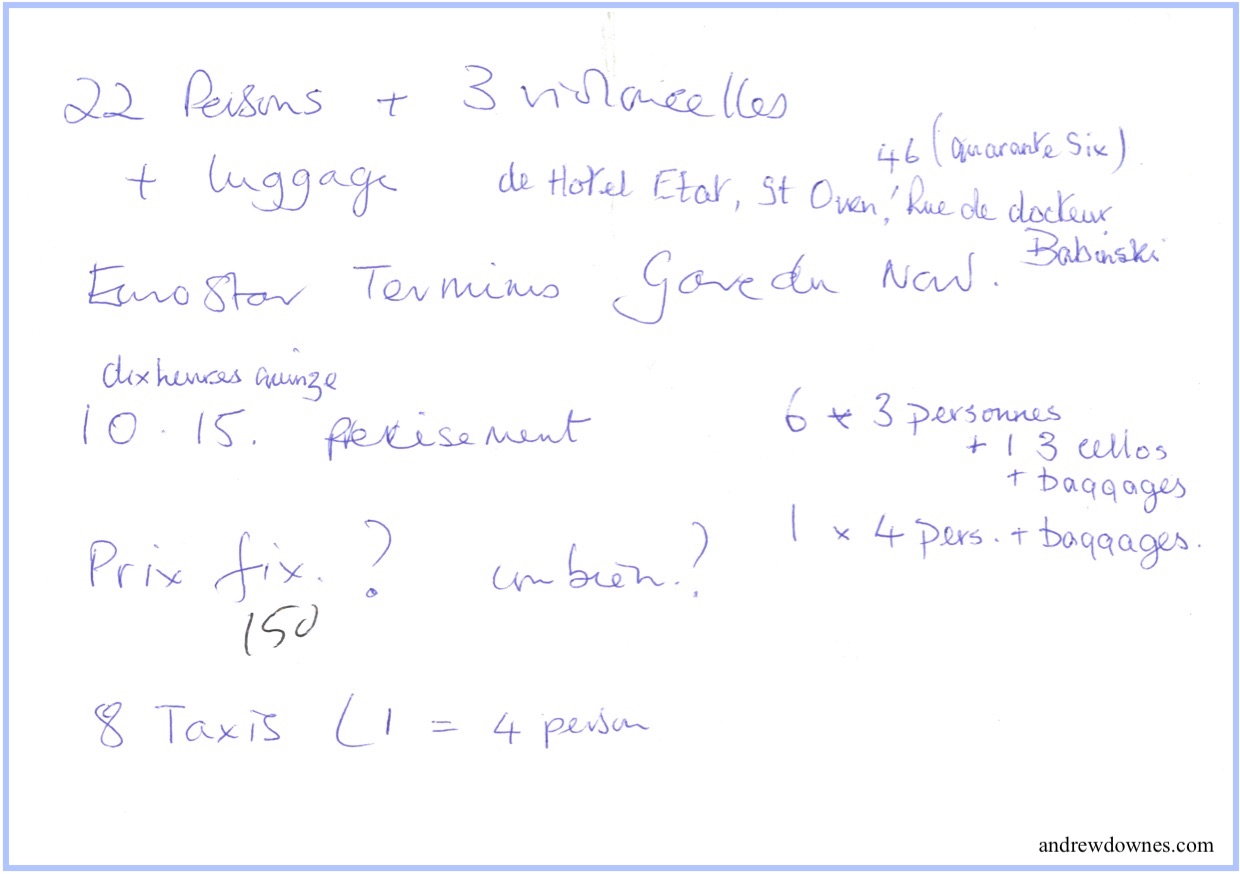 22 Persons + 3 violoncelles
46 (quarante Six)
+ luggage de Hotel Etat, St Ouen, Rue de docteur
Babinski
EuroStar Terminus Gare du Nord.
dix heures quinze
10.15. precisement
6 x 3 personnes
+ 1 3 cellos
+ baggages
1 x 4 pers. + baggages.
Prix fix. ? combien. ?
150
8 Taxis (1 = 4 person
andrewdownes.com